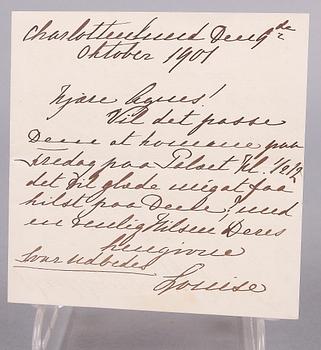 Charlottenlund Den 9de
Oktober 1901
Kjære Agnes!
Vil det passe
Dem at komme paa
Fredag paa Palæet Kl. 1/2 12
det vil glæde mig at faa
hilst paa Dem? med
en venlig Hilsen Deres
hengivne
Svar udbedes
Louise